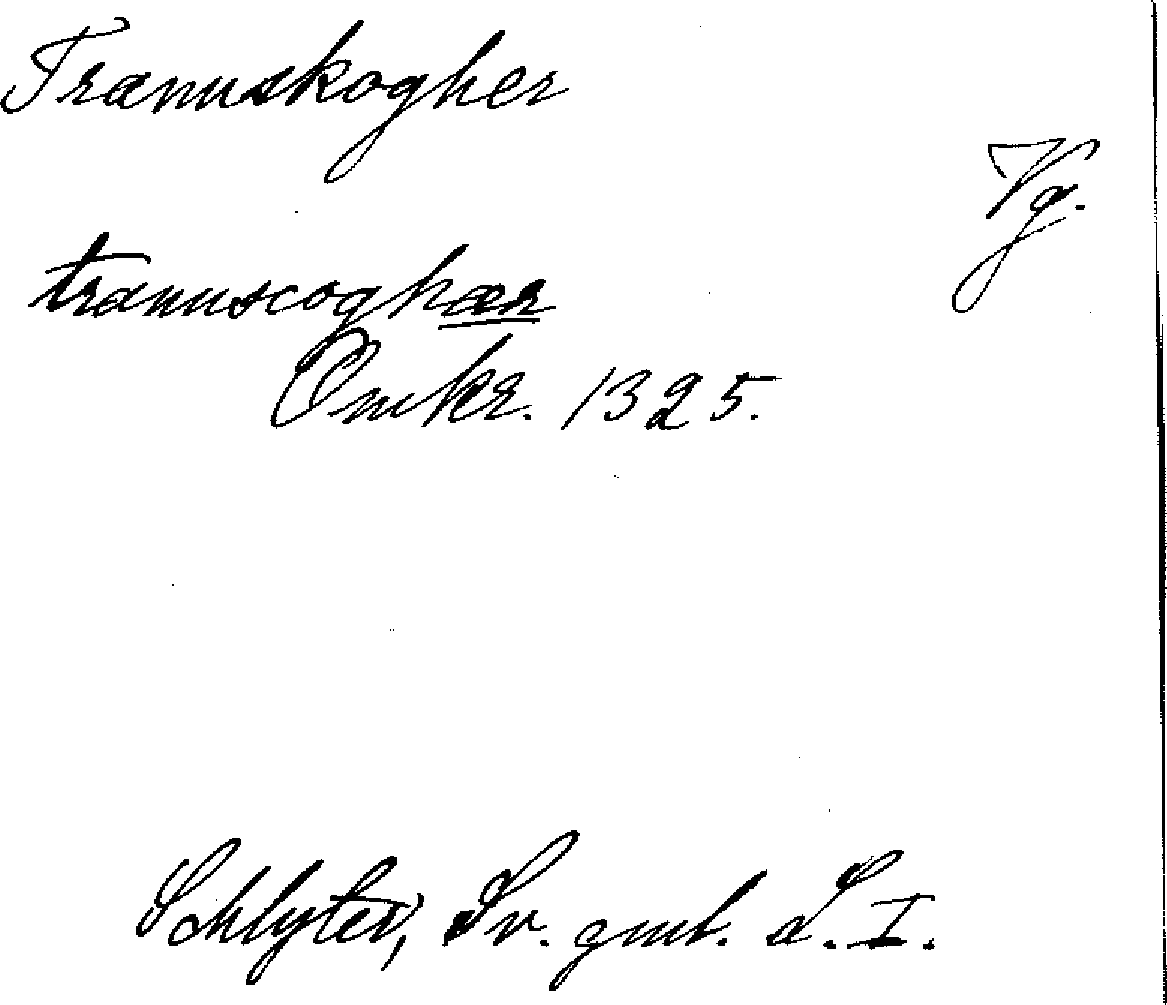 Tranuskogher
Vg.
tranuscoghær
Omkr. 1325.
Schlyter, Sv. gml. L. I.